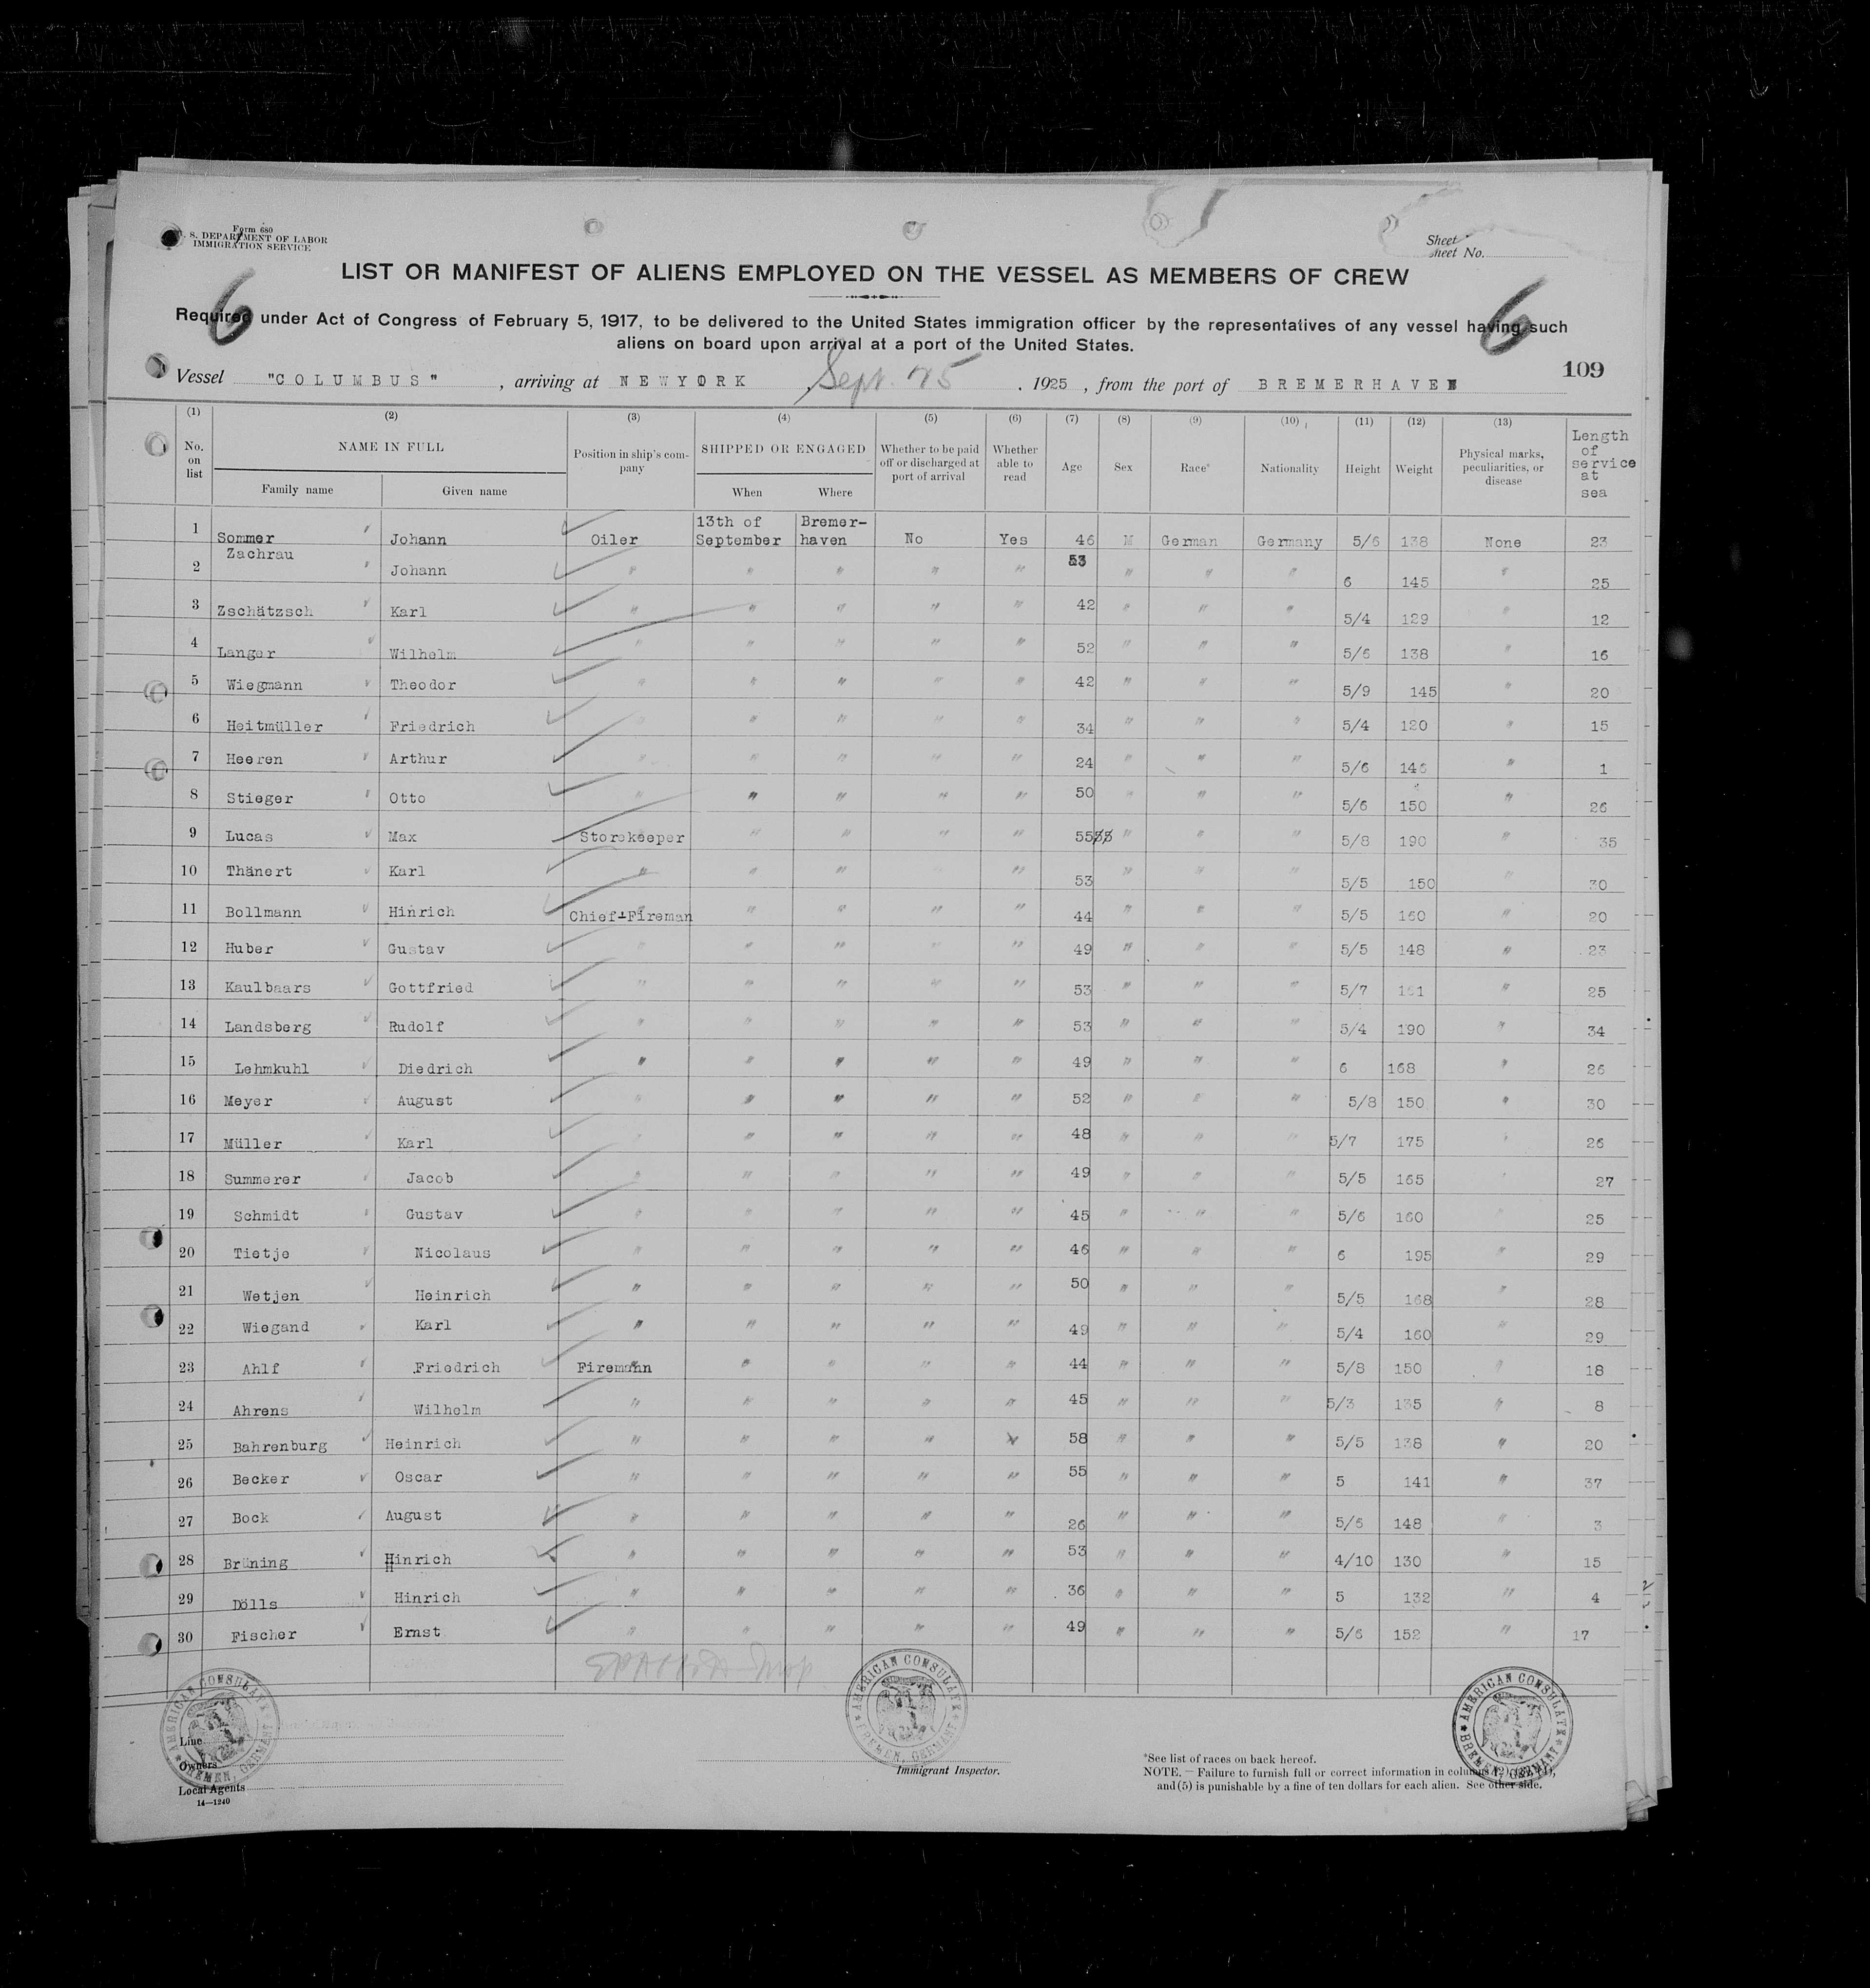 Form 680
S. DEPARTMENT OF LABOR
IMMIGRATION SERVICE
Sheet
Sheet No.
LIST OR MANIFEST OF ALIENS EMPLOYED ON THE VESSEL AS MEMBERS OF CREW
6 6
Required under Act of Congress of February 5, 1917, to be delivered to the United States immigration officer by the representatives of any vessel having such
aliens on board upon arrival at a port of the United States.
109
Vessel "COLUMBUS", arriving at NEWYORK, Sept. 1925, from the port of BREMERHAVEN
(1) (2) (3) (4) (5) (6) (7) (8) (9) (10) (11) (12) (13)
No. on list NAME IN FULL Family name Given name Position in ship's company SHIPPED OR ENGAGED When Where Whether to be paid off or discharged at port of arrival Whether able to read Age Sex Race* Nationality Height Weight Physical marks, peculiarities, or disease Length of service at sea
1 Sommer Johann Oiler 13th of September Bremer-haven No Yes 46 M German Germany 5/6 138 None 23
2 Zachrau Johann " " " " " 53 " " " 6 145 " 25
3 Zschätzsch Karl " " " " " 42 " " " 5/4 129 " 12
4 Langer Wilhelm " " " " " 52 " " " 5/6 138 " 16
5 Wiegmann Theodor " " " " " 42 " " " 5/9 145 " 20
6 Heitmüller Friedrich " " " " " 34 " " " 5/4 120 " 15
7 Heeren Arthur " " " " " 24 " " " 5/6 146 " 1
8 Stieger Otto " " " " " 50 " " " 5/6 150 " 26
9 Lucas Max Storekeeper " " " " 55 " " " 5/8 190 " 35
10 Thänert Karl " " " " " 53 " " " 5/5 150 " 30
11 Bollmann Hinrich Chief-Fireman " " " " 44 " " " 5/5 160 " 20
12 Huber Gustav " " " " " 49 " " " 5/5 148 " 23
13 Kaulbaars Gottfried " " " " " 53 " " " 5/7 161 " 25
14 Landsberg Rudolf " " " " " 53 " " " 5/4 190 " 34
15 Lehmkuhl Diedrich " " " " " 49 " " " 6 168 " 26
16 Meyer August " " " " " 52 " " " 5/8 150 " 30
17 Müller Karl " " " " " 48 " " " 5/7 175 " 26
18 Summerer Jacob " " " " " 49 " " " 5/5 165 " 27
19 Schmidt Gustav " " " " " 45 " " " 5/6 160 " 25
20 Tietje Nicolaus " " " " " 46 " " " 6 195 " 29
21 Wetjen Heinrich " " " " " 50 " " " 5/5 168 " 28
22 Wiegand Karl " " " " " 49 " " " 5/4 160 " 29
23 Ahlf Friedrich Firemann " " " " 44 " " " 5/8 150 " 18
24 Ahrens Wilhelm " " " " " 45 " " " 5/3 135 " 8
25 Bahrenburg Heinrich " " " " " 58 " " " 5/5 138 " 20
26 Becker Oscar " " " " " 55 " " " 5 141 " 37
27 Bock August " " " " " 26 " " " 5/6 148 " 3
28 Brüning Hinrich " " " " " 53 " " " 4/10 130 " 15
29 Dölls Hinrich " " " " " 36 " " " 5 132 " 4
30 Fischer Ernst " " " " " 49 " " " 5/6 152 " 17
AMERICAN CONSULATE BREMEN, GERMANY
AMERICAN CONSULATE BREMEN, GERMANY
AMERICAN CONSULATE BREMEN, GERMANY
Line
Owners
Local Agents
14—1240
Immigrant Inspector.
*See list of races on back hereof.
NOTE.—Failure to furnish full or correct information in columns
and (5) is punishable by a fine of ten dollars for each alien. See other side.